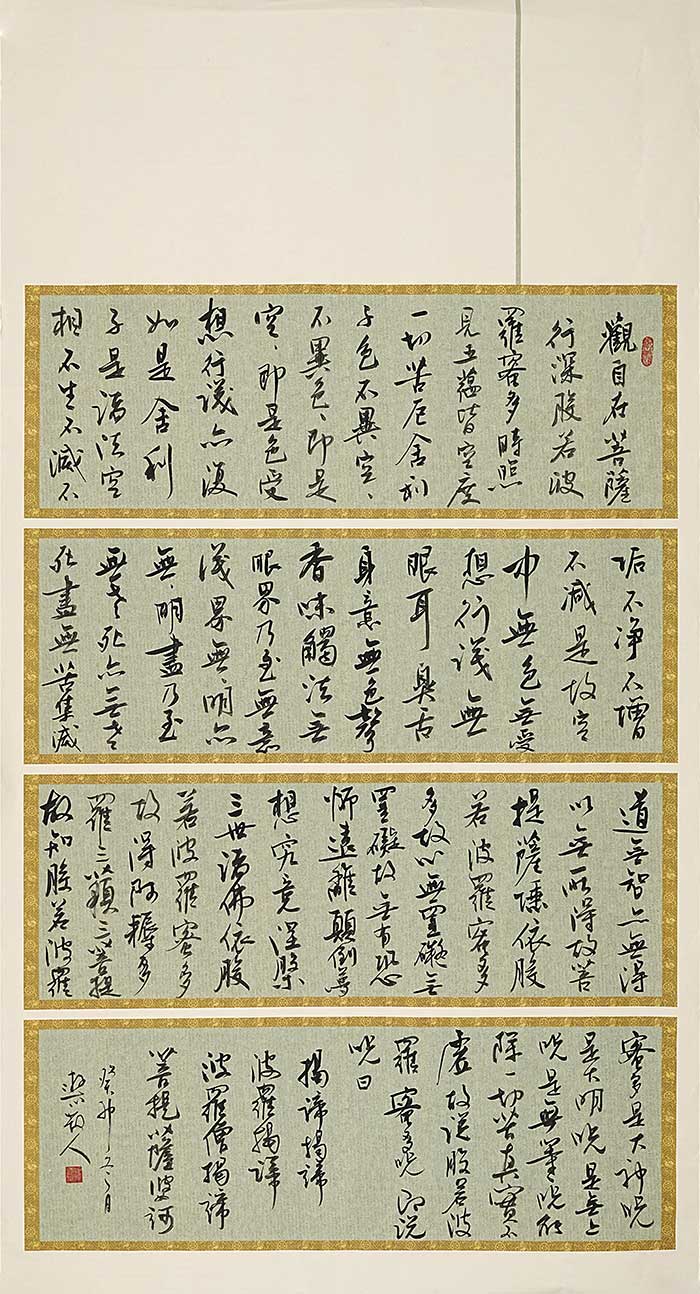 觀自在菩薩
行深般若波
羅蜜多時照
見五蘊皆空度
一切苦厄舍利
子色不異空、
不異色、即是
空、即是色受
想行識亦復
如是舍利
子是諸法空
相不生不滅不
垢不净不增
不減是故空
中無色無受
想行識無
眼耳鼻舌
身意無色聲
香味觸法無
眼界乃至無意
識界無、明亦
無、明盡乃至
無老死亦無老
死盡無苦集滅
道無智亦無得
以無所得故菩
提薩埵依般
若波羅蜜多
多故心無罣礙無
罣礙故無有恐
怖遠離顛倒夢
想究竟涅槃
三世諸佛依般
若波羅蜜多
故得阿耨多
羅三藐三菩提
故知般若波羅
蜜多是大神呪
是大明呪是無上
呪是無等呪能
除一切苦真實不
虛故說般若波
羅蜜多呪即說
呪曰
揭諦揭諦
波羅揭諦
波羅僧揭諦
菩提薩婆訶
癸卯月
人